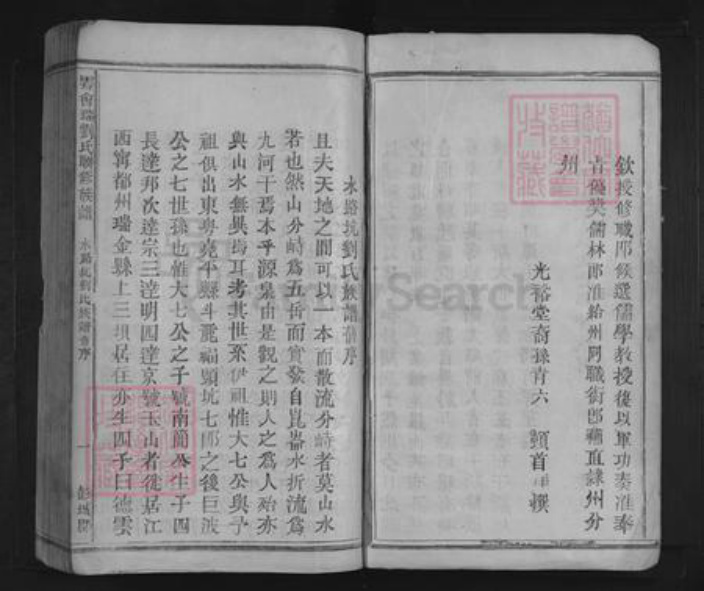 欽授修職郎候選儒學教授復以軍功奏准奉
旨優獎儒林郎准給州同職銜即補直隸州分
州
光裕堂裔孫青六 頓首 撰
水路坑劉氏族譜舊序
且夫天地之間可以一本而散流分峙者莫山水
若也然山分峙為五岳而實發自崑崙水折流為
九河于焉本乎源泉由是觀之則人之為人殆亦
與山水無異焉耳考其世系伊祖惟大七公與予
祖俱出東粵堯平縣斗龍福頭坑七郎之後巨波
公之七世孫也惟大七公之子號南简公生子四
長達邦次達宗三達明四達京號玉山者徙居江
西寧都州瑞金縣上三坝居住亦生四子曰德雲
雩會瑞劉氏聯修族譜
水路坑劉氏族譜舊序
一
彭城郡
Search